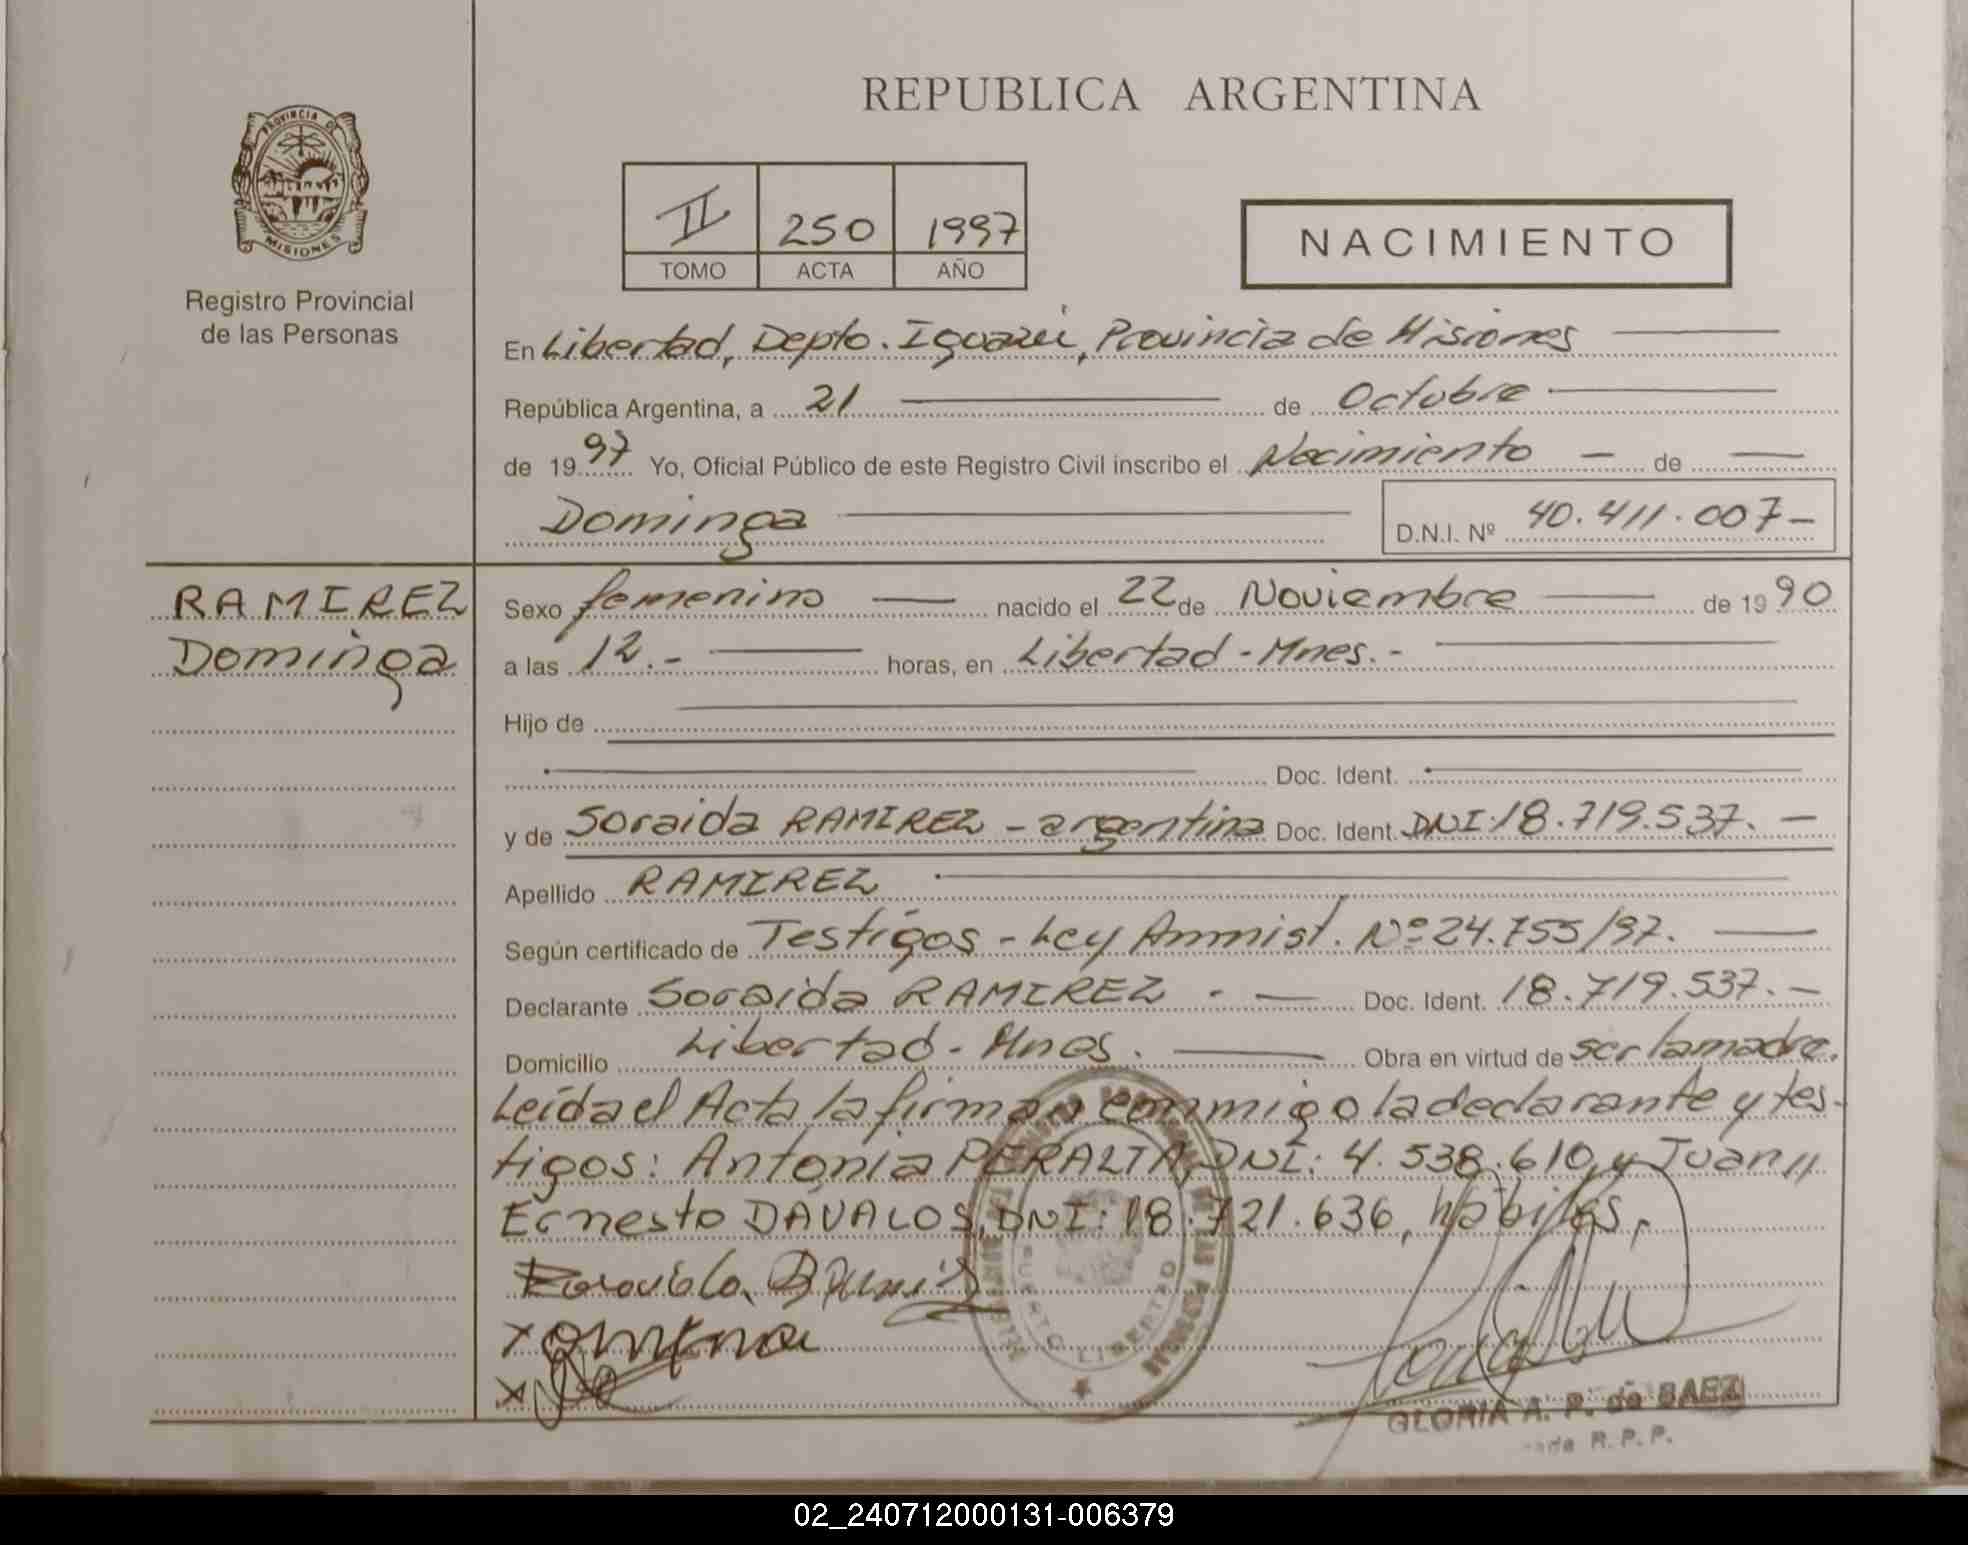 REPUBLICA ARGENTINA
PROVINCIA DE
MISIONES
Registro Provincial
de las Personas
II 250 1997
TOMO ACTA AÑO
NACIMIENTO
En Libertad, Depto. Iguazú, Provincia de Misiones
República Argentina, a 21 de Octubre
de 1997 Yo, Oficial Público de este Registro Civil inscribo el Nacimiento — de —
Dominga D.N.I. Nº 40.411.007-
RAMIREZ
Dominga
Sexo femenino — nacido el 22 de Noviembre — de 1990
a las 12.- — horas, en Libertad - Mnes. -
Hijo de
Doc. Ident.
y de Soraida RAMIREZ - argentina Doc. Ident. DNI.18.719.537. -
Apellido RAMIREZ
Según certificado de Testigos - Ley Amnist. Nº 24.755/97. —
Declarante Soraida RAMIREZ - — Doc. Ident. 18.719.537. -
Domicilio Libertad - Mnes. — Obra en virtud de ser la madre.
Leída el Acta la firman conmigo la declarante y tes-
tigos: Antonia PERALTA, DNI: 4.538.610, y Juan,,
Ernesto DÁVALOS, DNI: 18.721.636, hábiles.
PUERTO LIBERTAD
GLORIA A. P. de BAEZ
R. P. P.
02_240712000131-006379